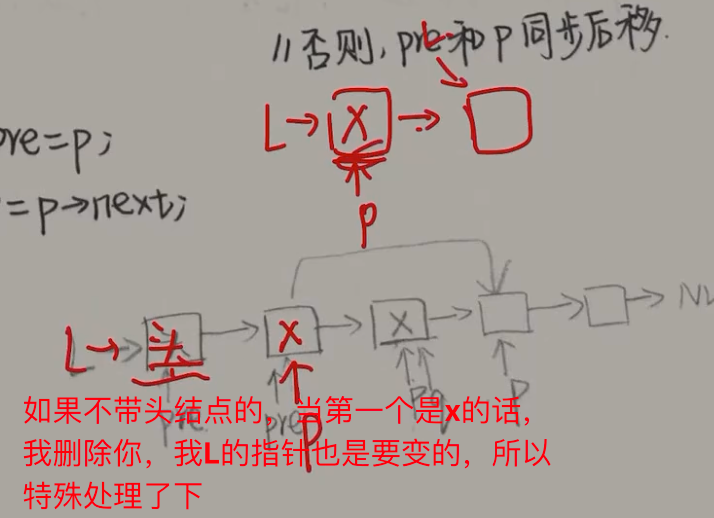 //否则,pre和p同步后移.
L
L→ X →
pre=p;
=p→next;
p
L→ 头 → X → X → → → NU
pre pre p q p
如果不带头结点的，当第一个是x的话，
我删除你，我L的指针也是要变的，所以
特殊处理了下